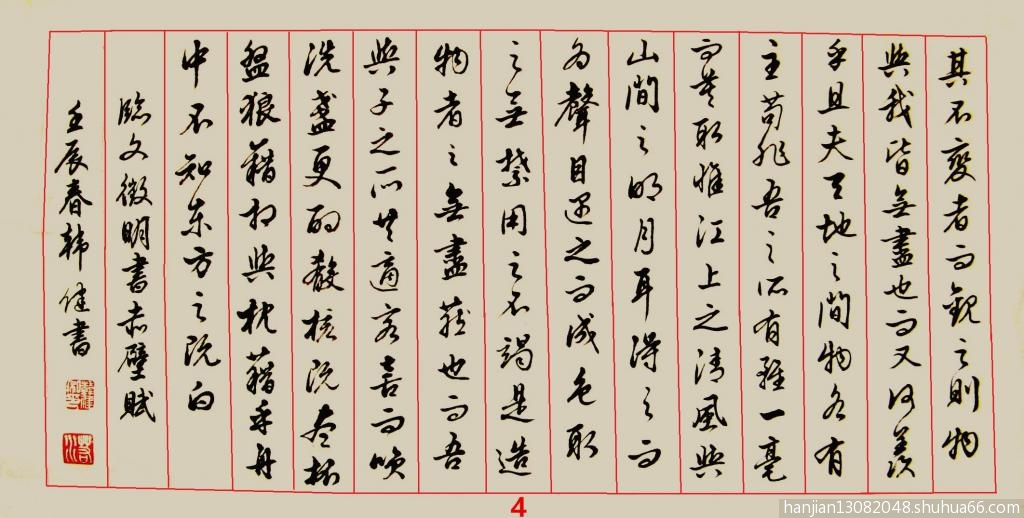 其不變者而觀之則物
與我皆無盡也而又何羨
乎且夫天地之間物各有
主苟非吾之所有雖一毫
而莫取惟江上之清風與
山間之明月耳得之而
為聲目遇之而成色取
之無禁用之不竭是造
物者之無盡藏也而吾
與子之所共適客喜而笑
洗盞更酌殽核既盡杯
盤狼藉相與枕藉乎舟
中不知東方之既白
臨文徵明書赤壁賦
壬辰春韓健書
4
hanjian13082048.shuhua66.com